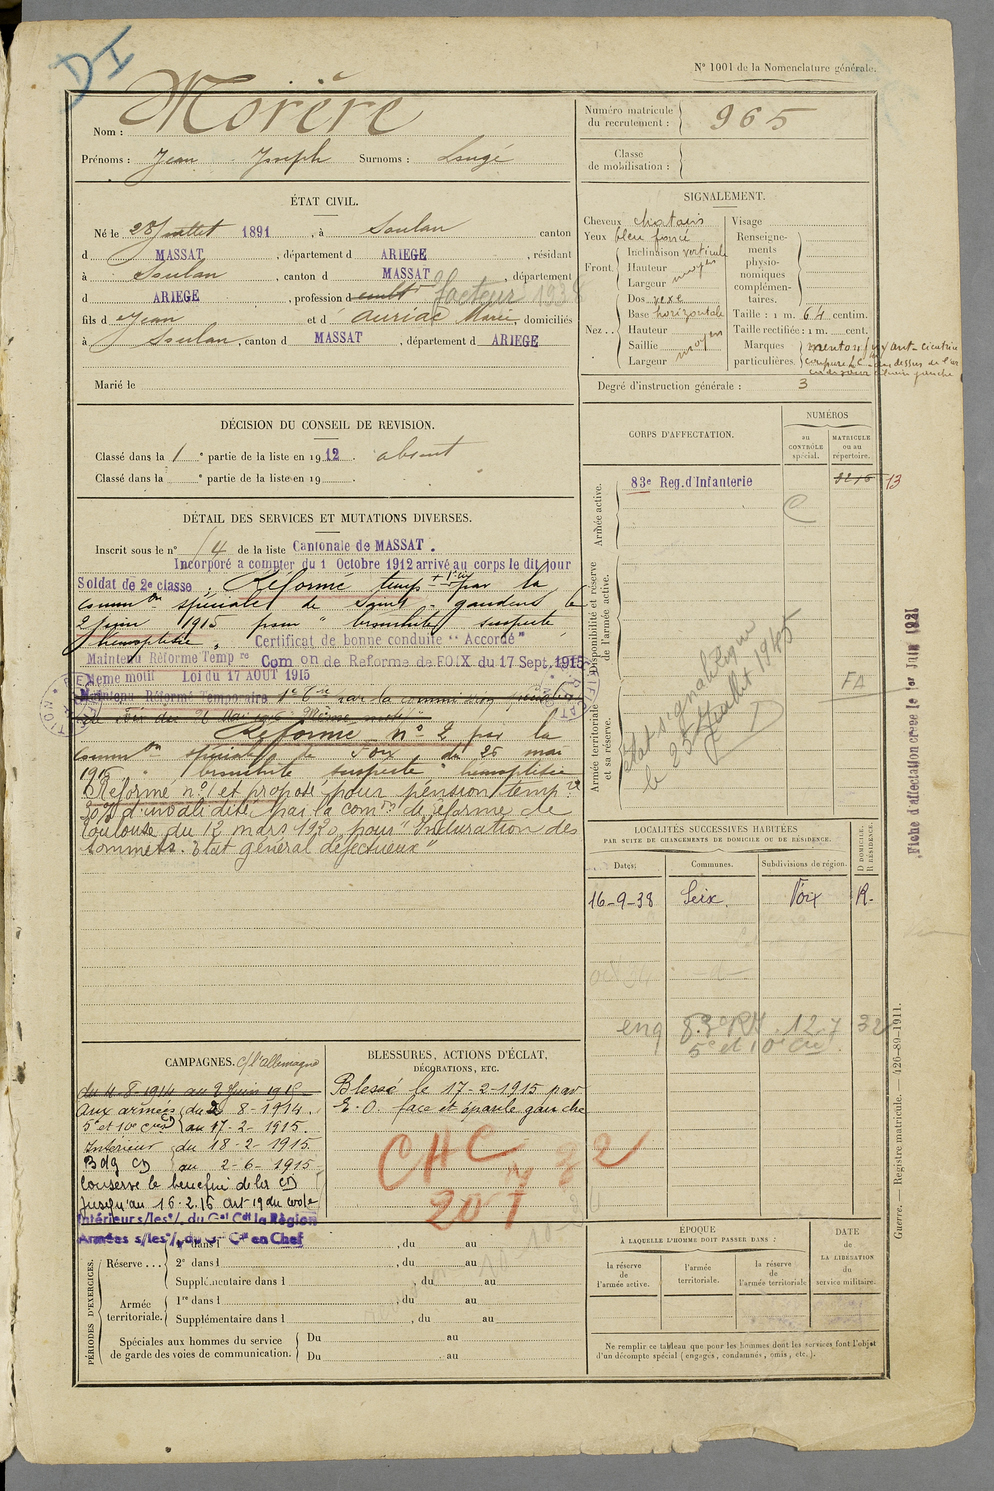 DI
N° 1001 de la Nomenclature générale.
Nom : Morère
Prénoms : Jean Joseph Surnoms : Laugé
Numéro matricule du recrutement : 965
Classe de mobilisation :
ÉTAT CIVIL.
Né le 28 Juillet 1891, à Soulan canton
d MASSAT, département d ARIEGE, résidant
à Soulan, canton d MASSAT, département
d ARIEGE, profession d cultr facteur 1938
fils d Jean et d' Auriac Marie, domiciliés
à Soulan, canton d MASSAT, département d ARIEGE
Marié le
SIGNALEMENT.
Cheveux chatains
Yeux bleu foncé
Front. Inclinaison verticale
Hauteur moyen
Largeur
Nez .. Dos vexe
Base horizontale
Hauteur moyen
Saillie
Largeur
Visage
Renseignements physionomiques complémentaires.
Taille : 1 m. 64 centim.
Taille rectifiée : 1 m. cent.
Marques particulières. menton fuyant - cicatrice
Degré d'instruction générale : 3
DÉCISION DU CONSEIL DE REVISION.
Classé dans la 1 e partie de la liste en 1912. absent
Classé dans la e partie de la liste en 19 .
CORPS D'AFFECTATION.
NUMÉROS
au CONTRÔLE spécial.
MATRICULE ou au répertoire.
Armée active.
83e Reg. d'Infanterie
13
C
Disponibilité et réserve de l'armée active.
Armée territoriale et sa réserve.
FA
état signalétique
le 25 Juillet 1945
D
Fiche d'affectation créée le 1er Juin 1921
DÉTAIL DES SERVICES ET MUTATIONS DIVERSES.
Inscrit sous le n° 14 de la liste Cantonale de MASSAT.
Incorporé a compter du 1 Octobre 1912 arrivé au corps le dit jour
Soldat de 2e classe, Réformé temp re + 1 par la
comm on spéciale de Saint-gaudens le
2 juin 1915 pour "bronchite suspecte,
hémoptisie". Certificat de bonne conduite "Accordé"
Maintenu Réformé Temp re Com on de Reforme de FOIX du 17 Sept. 1915
Meme motif Loi du 17 AOUT 1915
Maintenu Réformé Temporaire par la commission spéciale
de Foix du 26 Mai 1916 "Même motif"
Réformé n° 2 par la
comm on spéciale de Foix du 26 mai
1916 "bronchite suspecte hémoptisie
Réformé n° 1 et proposé pour pension temp re
30% d'invalidité par la com on de réforme de
Toulouse du 12 mars 1920 pour "Induration des
sommets. Etat général défectueux"
LOCALITÉS SUCCESSIVES HABITÉES
PAR SUITE DE CHANGEMENTS DE DOMICILE OU DE RÉSIDENCE.
Dates. Communes. Subdivisions de région. D DOMICILE. R RÉSIDENCE.
16-9-38 Seix. Foix R.
enq 83e RI. 12.7 32
5e et 10e Cie.
CAMPAGNES. c/ l'allemagne
du 4-8-1914 au 2 Juin 1915
Aux armées du 2 8-1914.
5e et 10e Cies au 17-2-1915.
Intérieur du 18-2-1915.
Bdg CD au 2-6-1915
Conserve le bénéfice de la CD
jusqu'au 16.2.16 art 19 du code
Intérieur s/les o/ du Gal Cdt la Région
Armées s/les o/ du Gal Cdt en Chef
BLESSURES, ACTIONS D'ÉCLAT, DÉCORATIONS, ETC.
Blessé le 17-2-1915 par
E. O. face et épaule gauche
PÉRIODES D'EXERCICES.
Réserve ... 1re dans l , du au
2e dans l , du au
Supplémentaire dans l , du au
Armée territoriale. 1re dans l , du au
Supplémentaire dans l , du au
Spéciales aux hommes du service de garde des voies de communication. Du au
Du au
ÉPOQUE
À LAQUELLE L'HOMME DOIT PASSER DANS :
la réserve de l'armée active.
l'armée territoriale.
la réserve de l'armée territoriale
DATE de LA LIBÉRATION du service militaire.
Ne remplir ce tableau que pour les hommes dont les services font l'objet
d'un décompte spécial (engagés, condamnés, omis, etc.).
Guerre. — Registre matricule. — 426-89-1911.